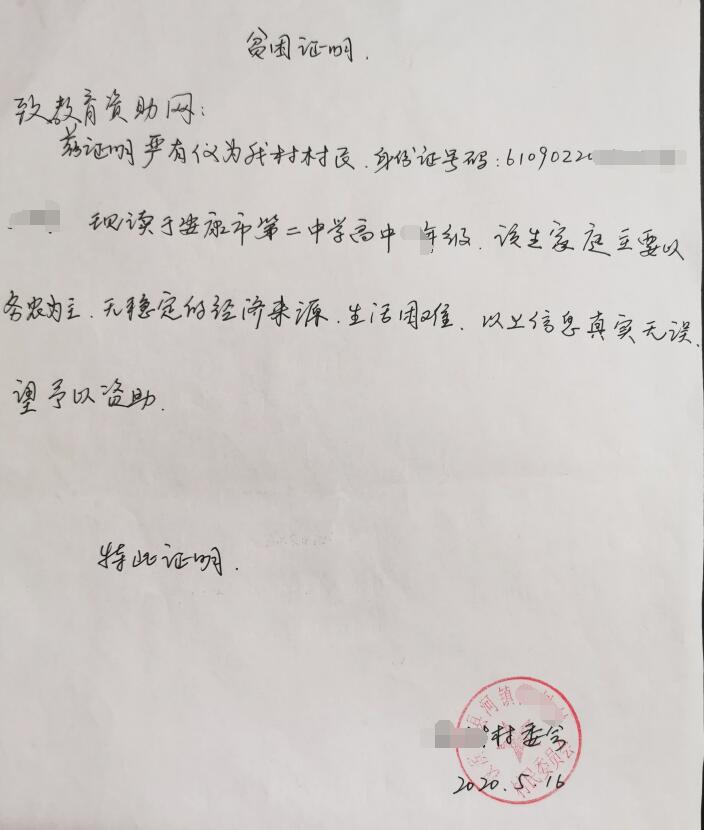 贫困证明.
致教育资助网：
兹证明严有仪为我村村民.身份证号码：6109022
现读于安康市第二中学高中 年级.该生家庭主要以
务农为主.无稳定的经济来源.生活困难.以上信息真实无误.
望予以资助.
特此证明.
河镇
村委会
村民委员会
2020.5.16